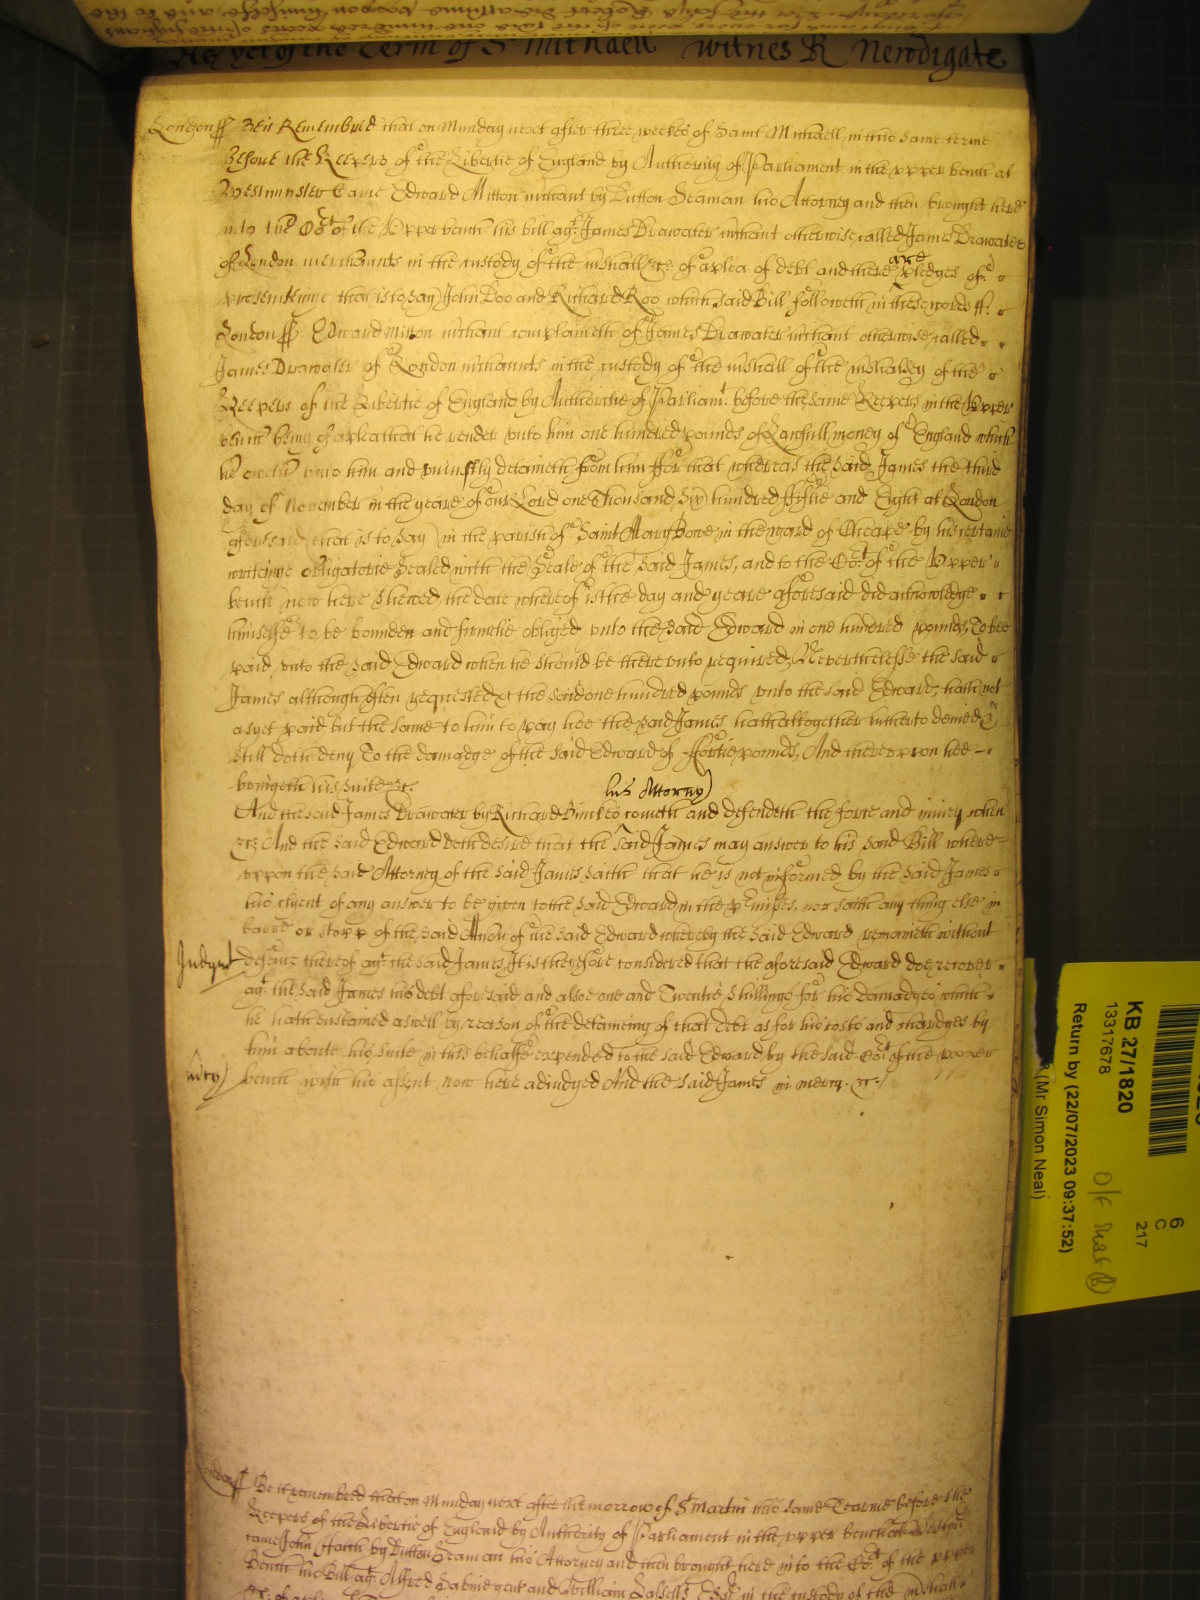 As yet of the Term of St Michaell Witnes R Newdigate
London ss Be it Remembred that on Munday next after three weekes of Saint Michaell in this same terme
Before the Keepers of the Libertie of England by Authority of Parliament in the upper bench at
Westminster Came Edward Mitton m'chant by Dutton Seaman his Attorney and then brought here
into the Cort of the Upper bench his bill agt James Drawater m'chant otherwise called James Drawater
of London merchaunts in the custody of the m'shall &c of a plea of debt and there are pledges of
prosecuteing that is to say John Doo and Richard Roo which said Bill followeth in these words ss.
London ss Edward Mitton m'chant complaineth of James Drawater m'chant otherwise called
James Drawater of London m'chaunts in the custody of the m'shall of the m'shalsey of the
Keepers of the Libertie of England by Authoritie of Parliamt. before the same Keepers in the Upper
bench being of a plea that he render unto him one hundred pounds of Lawfull money of England which
he oweth unto him and uniustly detaineth from him For that whereas the said James the third
day of November in the yeare of our Lord one Thousand Six hundred Fiftie and Eight at London
aforesaid (that is to say) in the parish of Saint Mary Bowe in the ward of Cheape by his certaine
writeinge obligatorie Sealed with the Seale of the said James, and to the Cort of the Upper
bench now here shewed the date whereof is the day and yeare aforesaid did acknowledge
himselfe to be bounden and firmelie obliged unto the said Edward in one hundred pounds, To bee
paid unto the said Edward when he should be thereunto required, Neverthelesse the said
James although often requested &c the said one hundred pounds unto the said Edward, hath not
as yet paid but the same to him to pay hee the said James hath altogether hitherto denied &
still doth deny To the damadge of the said Edward of fortie pounds, And thereupon hee
bringeth his suite &c.
And the said James Drawater by Richard Binckes his Attorny cometh and defendeth the force and iniury when
&c And the said Edward doth desire that the said James may answer to his said Bill where
uppon the said Attorney of the said James saith that he is not informed by the said James
his clyent of any answer to be given to the said Edward in the p'misses, nor saith any thing else in
barre or stopp of the said Action of the said Edward whereby the said Edward remaineth without
Judgmt defence thereof agt the said James, It is therefore considered that the aforesaid Edward doe recover
agt the said James his debt aforesaid and alsoe one and Twentie Shillings for his damadges which
he hath sustained aswell by reason of the detaineing of that debt as for his costs and chardges by
him aboute his suite in this behalfe expended to the said Edward by the said Cort of the upper
mercy bench with his assent now here adiudged And the said James in mercy &c.
London ss Be it remembred that on Munday next after the morrow of St Martin this same Tearme before the
Keepers of the Libertie of England by Authority of Parliament in the upper bench at Westmr
came John by Dutton Seaman his Attorney and then brought here into the Cort of the upper
Bench his Bill agt. Alfred gent and William in the custody of the m'shall
KB 27/1820
13317678
Return by (22/07/2023 09:37:52)
(Mr Simon Neal)
6
C
217